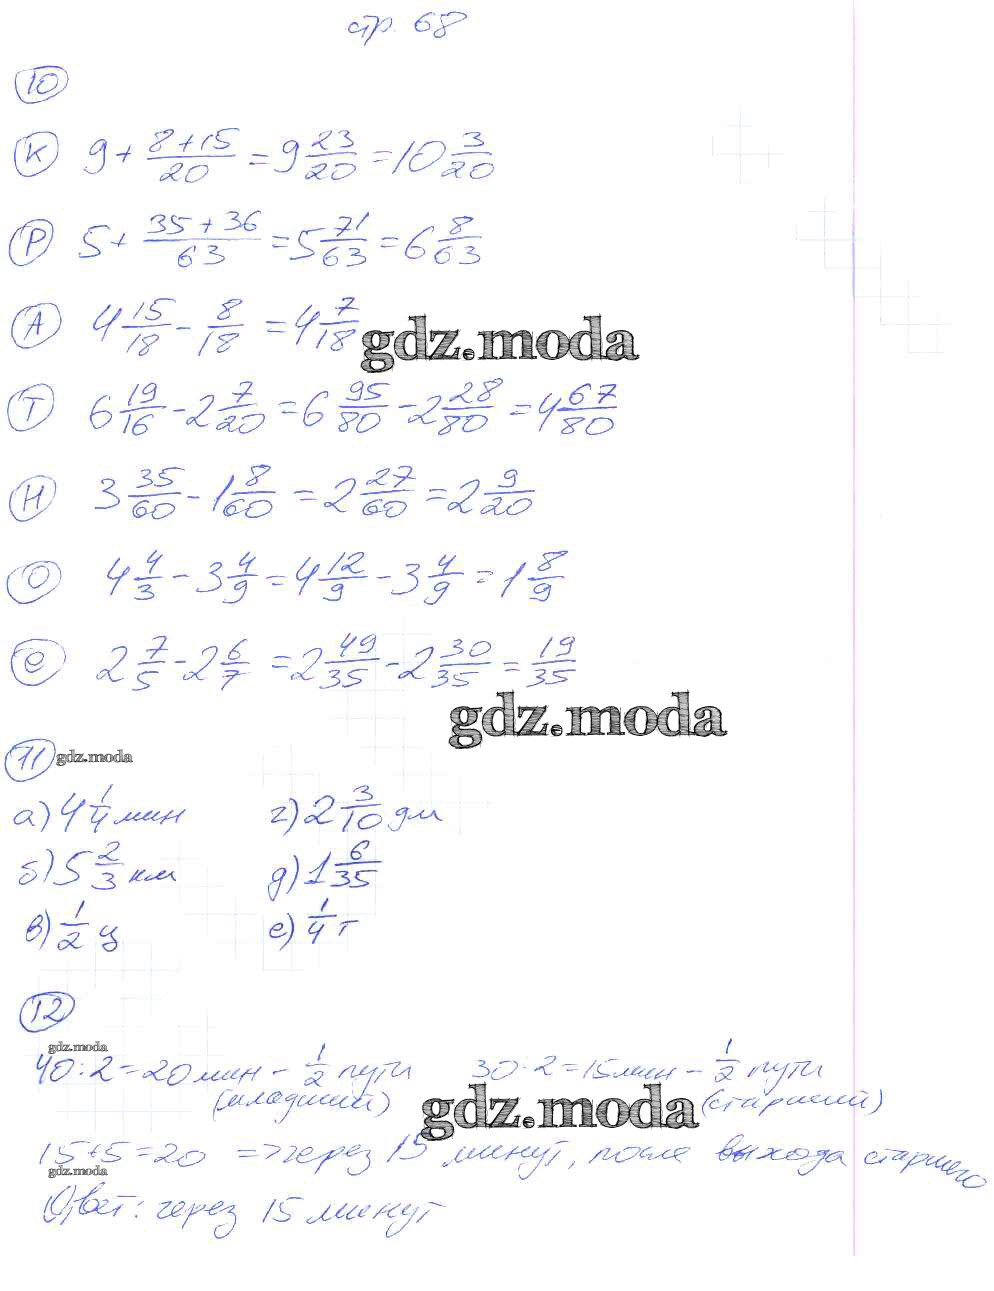 стр. 68
10
К 9 + (8+15)/20 = 9 23/20 = 10 3/20
Р 5 + (35+36)/63 = 5 71/63 = 6 8/63
А 4 15/18 - 8/18 = 4 7/18
gdz.moda
Т 6 19/16 - 2 7/20 = 6 95/80 - 2 28/80 = 4 67/80
Н 3 35/60 - 1 8/60 = 2 27/60 = 2 9/20
О 4 4/3 - 3 4/9 = 4 12/9 - 3 4/9 = 1 8/9
е 2 7/5 - 2 6/7 = 2 49/35 - 2 30/35 = 19/35
gdz.moda
11 gdz.moda
а) 4 1/4 мин г) 2 3/10 дм
б) 5 2/3 км д) 1 6/35
в) 1/2 ц е) 1/4 т
12
gdz.moda
40 : 2 = 20 мин - 1/2 пути 30 : 2 = 15 мин - 1/2 пути
(младший) gdz.moda (старший)
15 + 5 = 20 => через 15 минут, после выхода старшего
gdz.moda
Ответ: через 15 минут